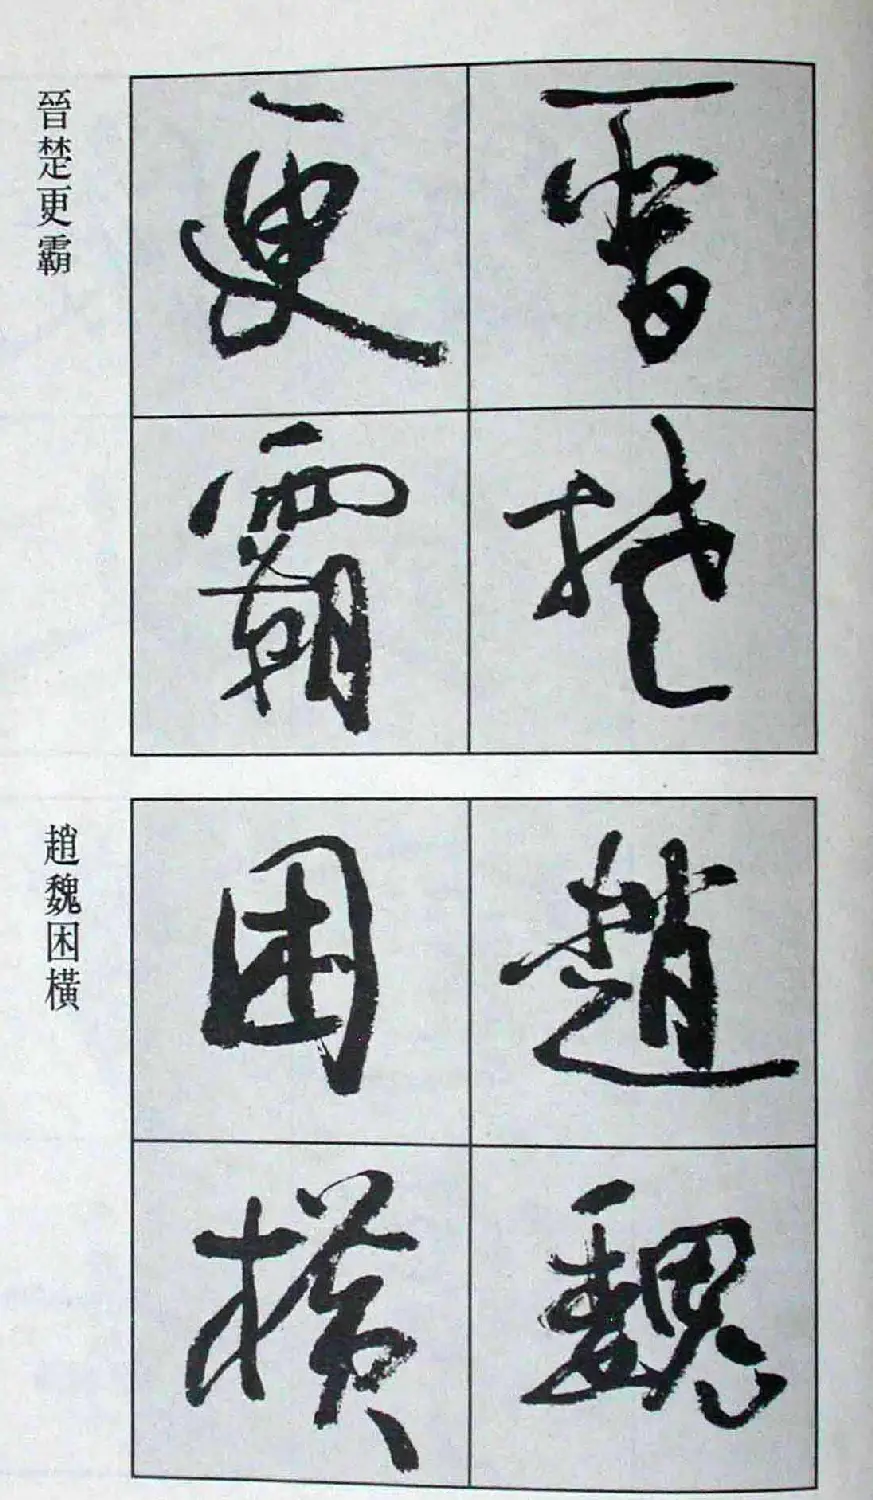 晉楚
更霸
晉楚更霸
趙魏
困橫
趙魏困橫